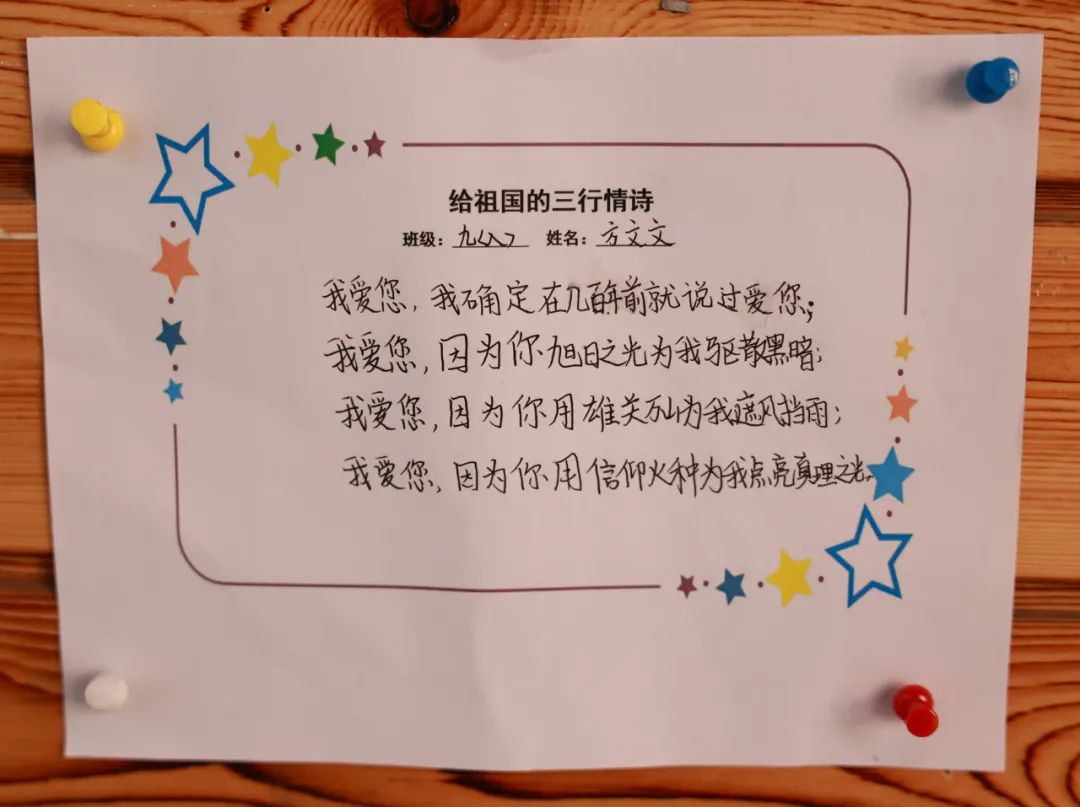 给祖国的三行情诗
班级：九〈八〉 姓名：方文文
我爱您，我确定在几百年前就说过爱您；
我爱您，因为你旭日之光为我驱散黑暗；
我爱您，因为你用雄关万山为我遮风挡雨；
我爱您，因为你用信仰火种为我点亮真理之光。